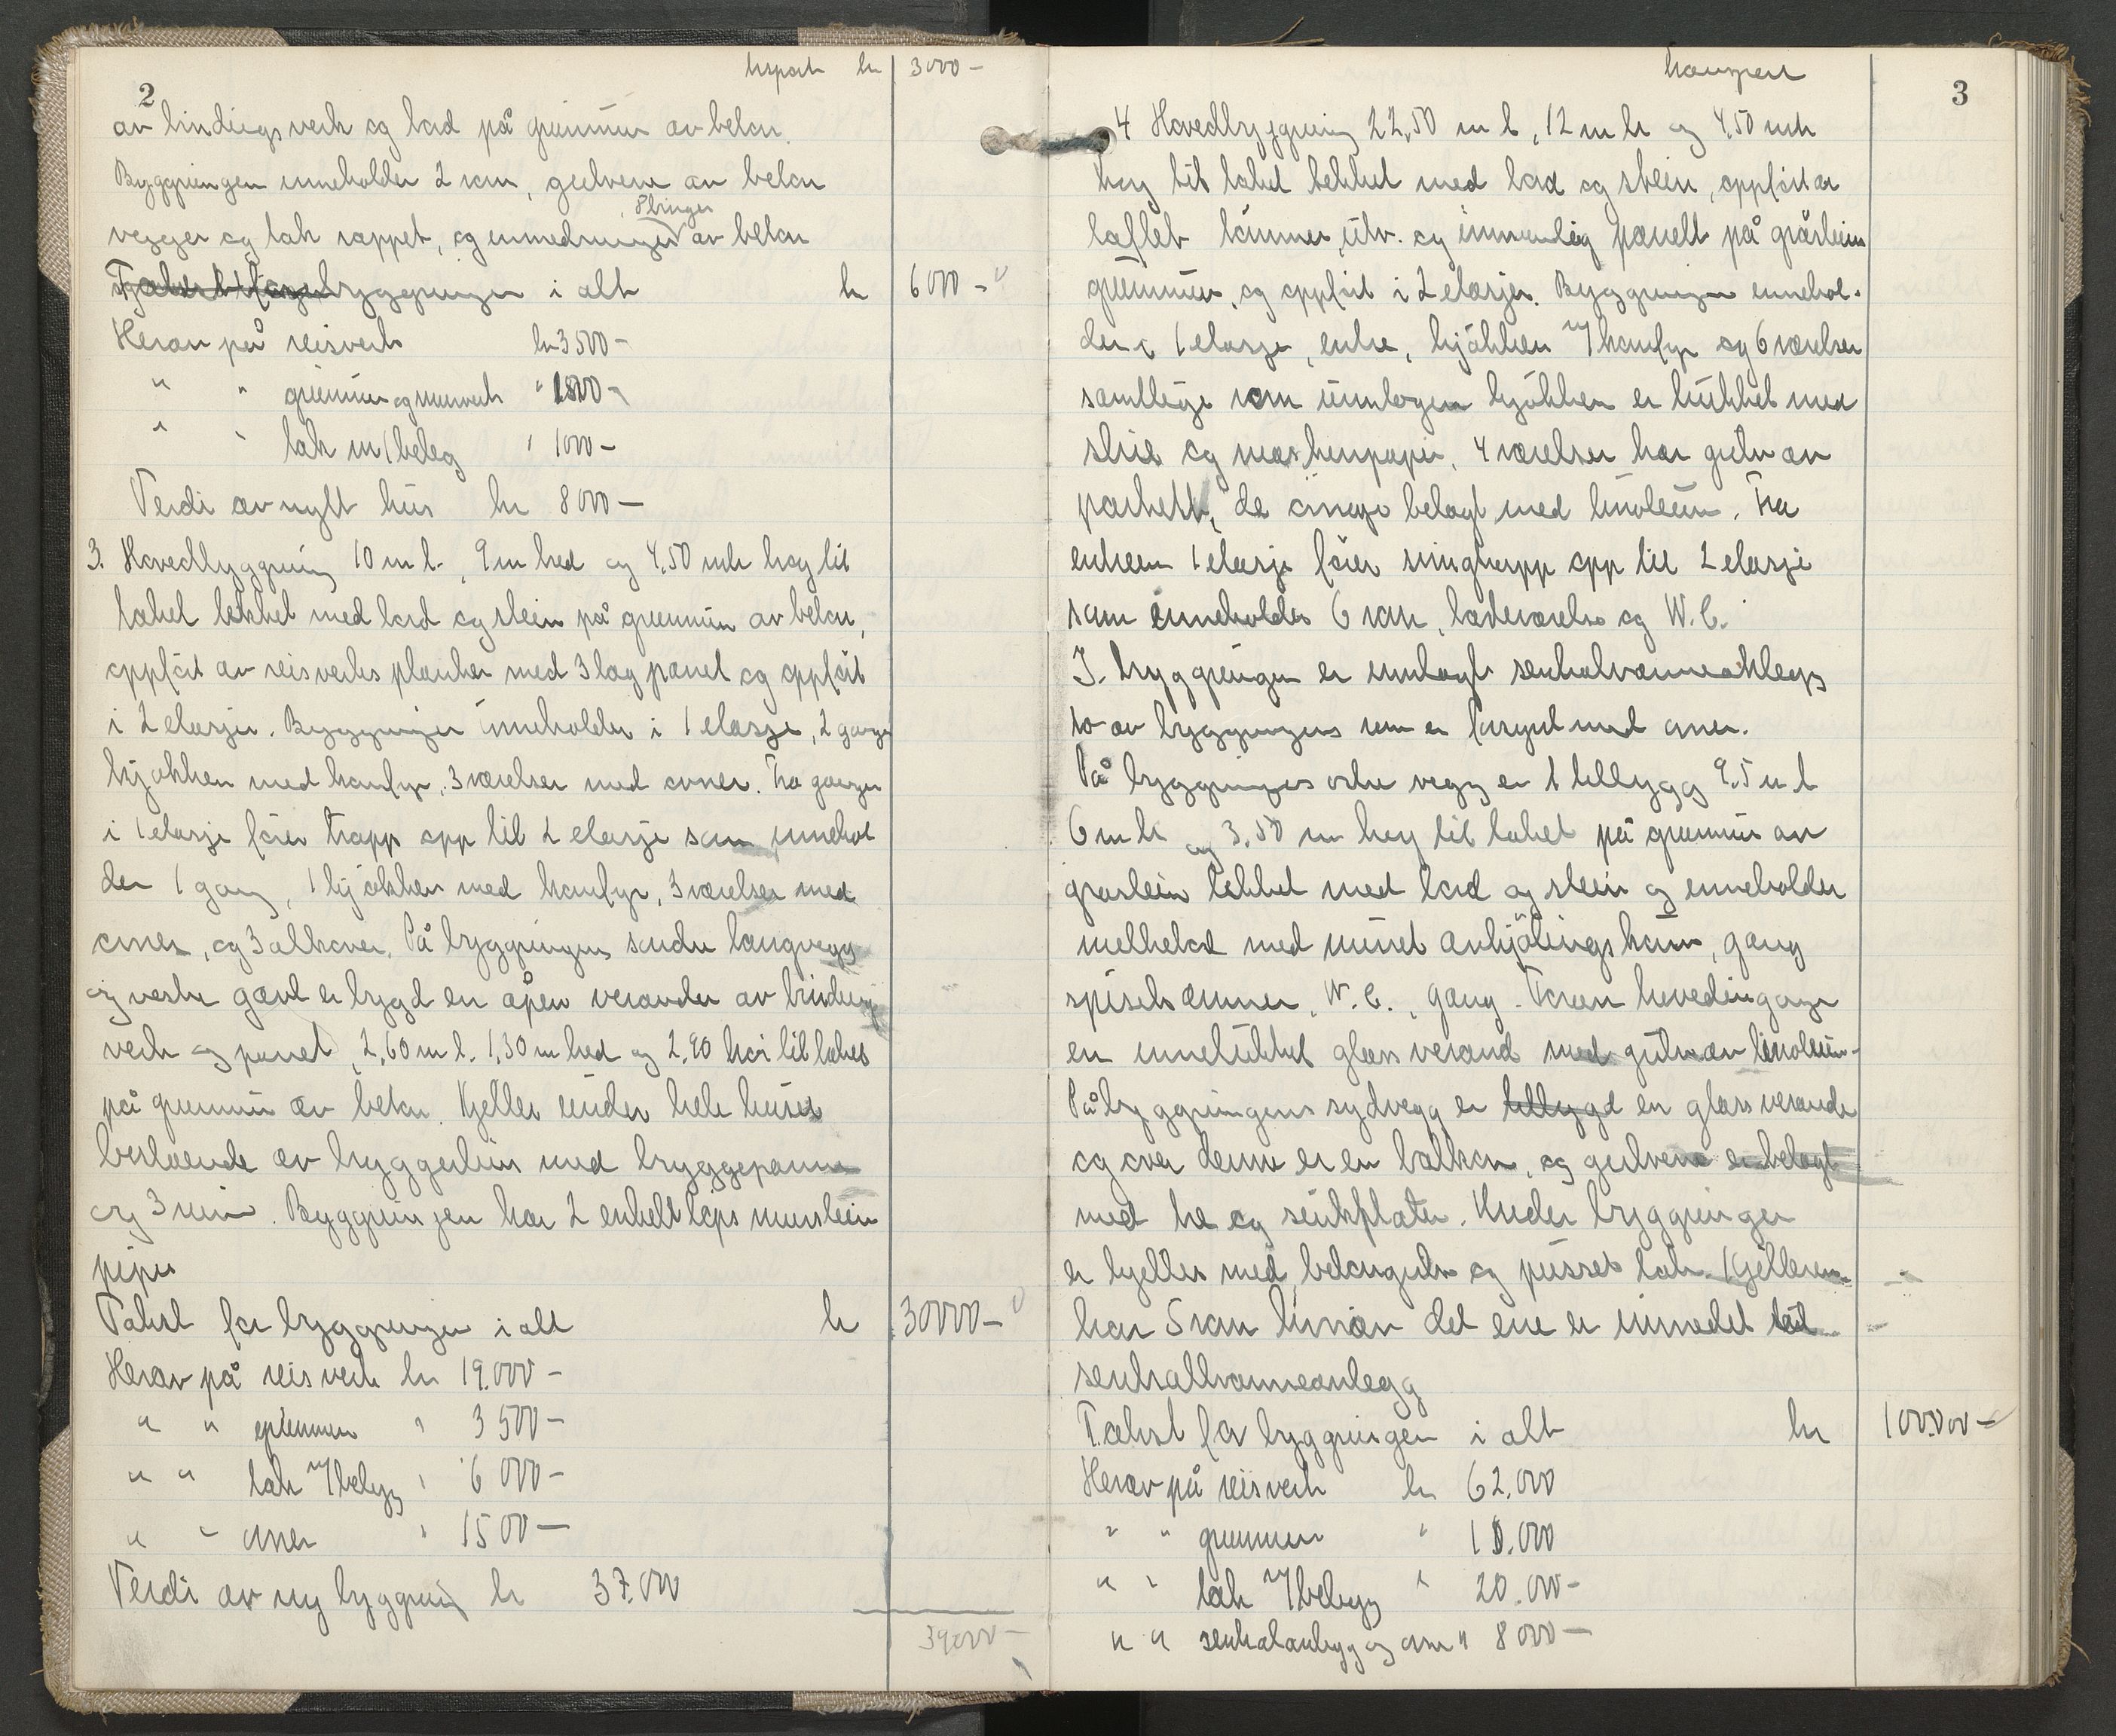 2
trsport kr 3000 -
av bindings verk og bord på grunnmur av beton.
Byggningen inneholder 2 rom, gulvene av beton
vegger og tak rappet, og innredninger av beton
8 binger
Takst for byggningen i alt kr 6000 -
Herav på reisverk kr 3500 -
" " grunnmur og murverk " 1500 -
" " tak m/beleg " 1000 -
Verdi av nytt hus kr 8000 -
3. Hovedbyggning 10 m l., 9 m bred og 4,50 mtr høy til
taket tekket med bord og stein på grunnmur av beton,
oppført av reisverks planker med 3 lag panel og oppført
i 2 etasjer. Byggningen inneholder i 1 etasje, 2 ganger
kjøkken med komfyr, 3 værelser med ovner. Fra gangen
i 1 etasje fører trapp opp til 2 etasje som innehol
der 1 gang, 1 kjøkken med komfyr, 3 værelser med
ovner, og 3 alkover. På byggningens søndre langvegg
og vestre gavl er bygd en åpen veranda av bindings
verk og panel, 2,60 m l. 1,30 m bred og 2,90 høi til taket
på grunnmur av beton. Kjeller under hele huset
bestående av bryggerhus med bryggepanne
og 3 rum. Byggningen har 2 enkelt løps murstein
piper
Takst for byggningen i alt kr 30000 -
Herav på reisverk kr 19.000 -
" " grunnmur " 3500 -
" " tak m/beleg " 6000 -
" " ovner " 1500 -
Verdi av ny byggning kr 37.000
39000 -
3
transport
4 Hovedbyggning 22,50 m l, 12 m br og 4,50 mtr
høy til taket tekket med bord og stein, oppført av
laftet tømmer, utv. og innvendig panelt på gråsteins
grunnmur, og oppført i 2 etasjer. Byggningen innehol-
der i 1 etasje, entre, kjøkken m/komfyr og 6 værelser
samtlige rom unntagen kjøkken er trukket med
strie og maskenpapir, 4 værelser har gulv av
parkett, de øvrige belagt med linoleum. Fra
entreen 1 etasje fører svingtrapp opp til 2 etasje
som inneholder 6 rom, badeværelse og W.C.
I. byggningen er innlagt sentralvarmeanlegg
to av byggningens rom er forsynt med ovner.
På byggningens østre vegg er 1 tilbygg 9.5 m l
6 m br og 3.50 m høy til taket på grunnmur av
gråstein tekket med bord og stein og inneholder
melkebod med muret avkjølings kum, gang
spiskammer, W.C., gang. Foran hovedinngangen
en innelukket glass verand med gulv av linoleum-
På byggningens sydvegg er tilbygd en glass veranda
og over denne er en balkon, og gulvene er belagt
med tre og sinkplater. Under byggningen
er kjeller med betongulv og pusset tak. Kjelleren
har 5 rom hvorav det ene er innredet til
sentralvarmeanlegg
Takst for byggningen i alt kr 100.000 -
Herav på reisverk kr 62.000
" " grunnmur " 10.000
" " tak m/beleg " 20.000 -
" " sentralanlegg og ovne " 8000 -